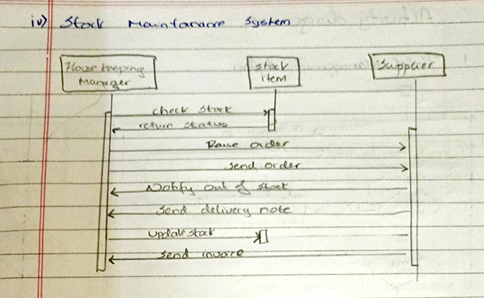 iv) Stock Maintanance System
House keeping
Manager
Stock
item
Supplier
check stock
return status
Raise order
Send order
Notify out of stock
Send delivery note
update stock
Send invoice